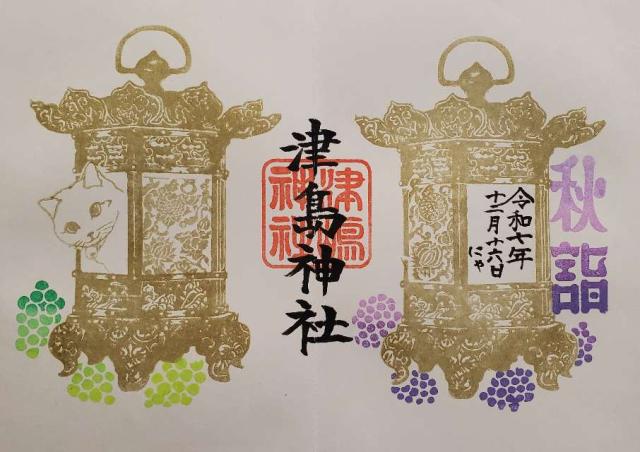 秋詣
令和七年
十二月十六日
にゃ
津島神社
津島
神社